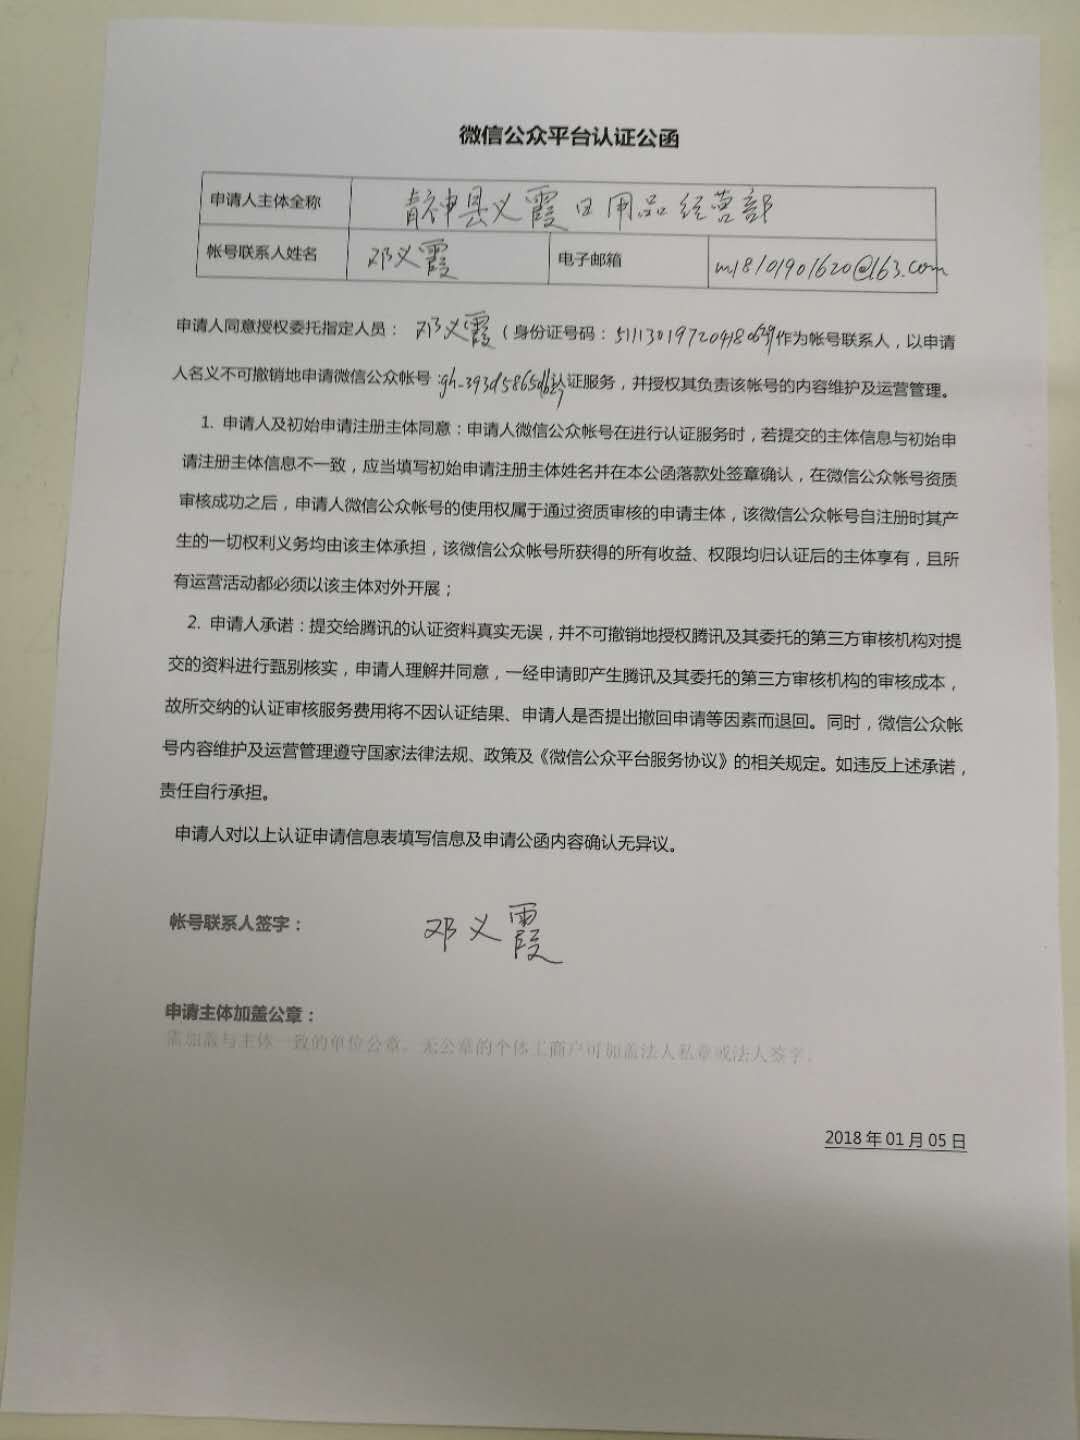 微信公众平台认证公函
申请人主体全称 青神县义霞日用品经营部
帐号联系人姓名 邓义霞 电子邮箱 m18101901620@163.com
申请人同意授权委托指定人员： 邓义霞 (身份证号码：511130197204180629作为帐号联系人，以申请
人名义不可撤销地申请微信公众帐号:gh_393d5865db认证服务，并授权其负责该帐号的内容维护及运营管理。
1. 申请人及初始申请注册主体同意：申请人微信公众帐号在进行认证服务时，若提交的主体信息与初始申
请注册主体信息不一致，应当填写初始申请注册主体姓名并在本公函落款处签章确认，在微信公众帐号资质
审核成功之后，申请人微信公众帐号的使用权属于通过资质审核的申请主体，该微信公众帐号自注册时其产
生的一切权利义务均由该主体承担，该微信公众帐号所获得的所有收益、权限均归认证后的主体享有，且所
有运营活动都必须以该主体对外开展；
2. 申请人承诺：提交给腾讯的认证资料真实无误，并不可撤销地授权腾讯及其委托的第三方审核机构对提
交的资料进行甄别核实，申请人理解并同意，一经申请即产生腾讯及其委托的第三方审核机构的审核成本，
故所交纳的认证审核服务费用将不因认证结果、申请人是否提出撤回申请等因素而退回。同时，微信公众帐
号内容维护及运营管理遵守国家法律法规、政策及《微信公众平台服务协议》的相关规定。如违反上述承诺，
责任自行承担。
申请人对以上认证申请信息表填写信息及申请公函内容确认无异议。
帐号联系人签字： 邓义霞
申请主体加盖公章：
需加盖与主体一致的单位公章。无公章的个体工商户可加盖法人私章或法人签字。
2018 年 01 月 05 日